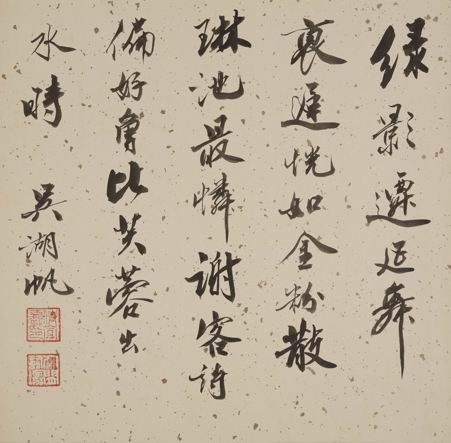 綠影遷延舞
褎遲恍如金粉散
琳池最憐謝客詩
偏好曾比芙蓉出
水時 吳湖帆